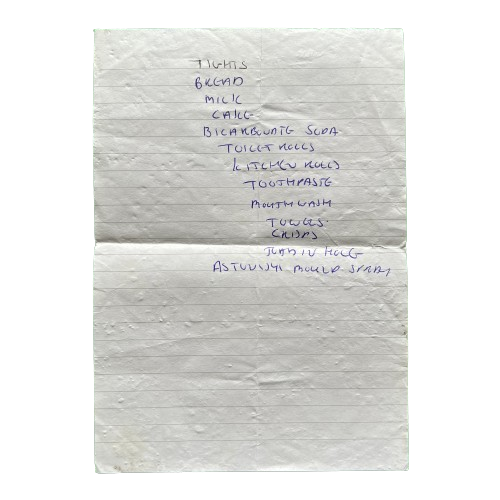 TIGHTS
BREAD
MILK
CAKE
BICARBONATE SODA
TOILET ROLLS
KITCHEN ROLLS
TOOTHPASTE
MOUTHWASH
CRISPS
ASTONISH MOULD SPRAY